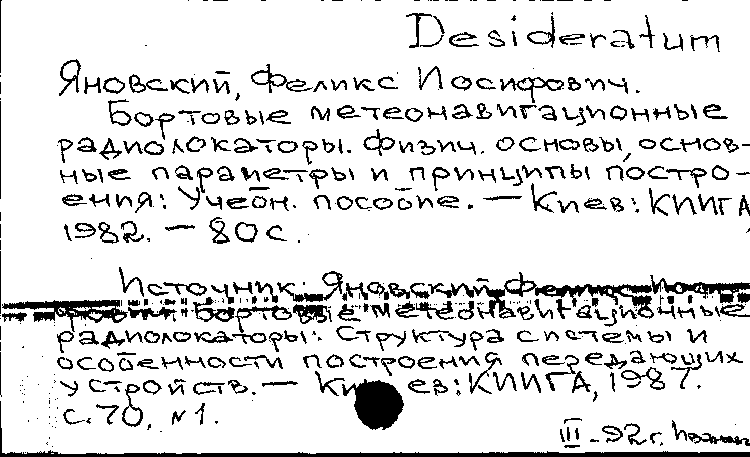 Desideratum
Яновский, Феликс Иосифович.
Бортовые метеонавигационные
радиолокаторы. Физич. основы, основ-
ные параметры и принципы постро-
ения: Учебн. пособие. — Киев: КИИГА,
1982. — 80 с.
Источник: Яновский Феликс Иоси-
фович. Бортовые метеонавигационные
радиолокаторы: Структура системы и
особенности построения передающих
устройств. — Киев: КИИГА, 1987.
с. 70, №1.
III - 92 г.